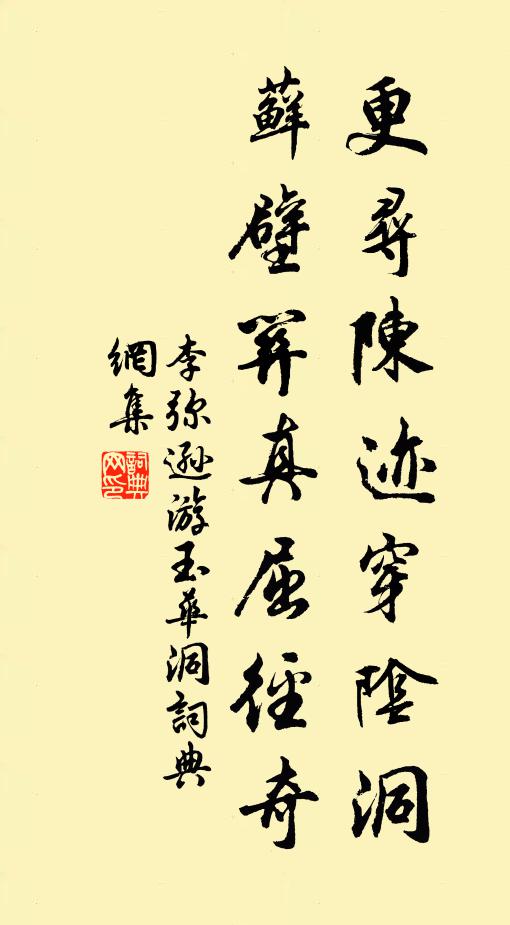 更尋陳迹穿陰洞
蘚壁筭真屈徑奇
李弥遜游玉華洞詞典
網集
詞典網印